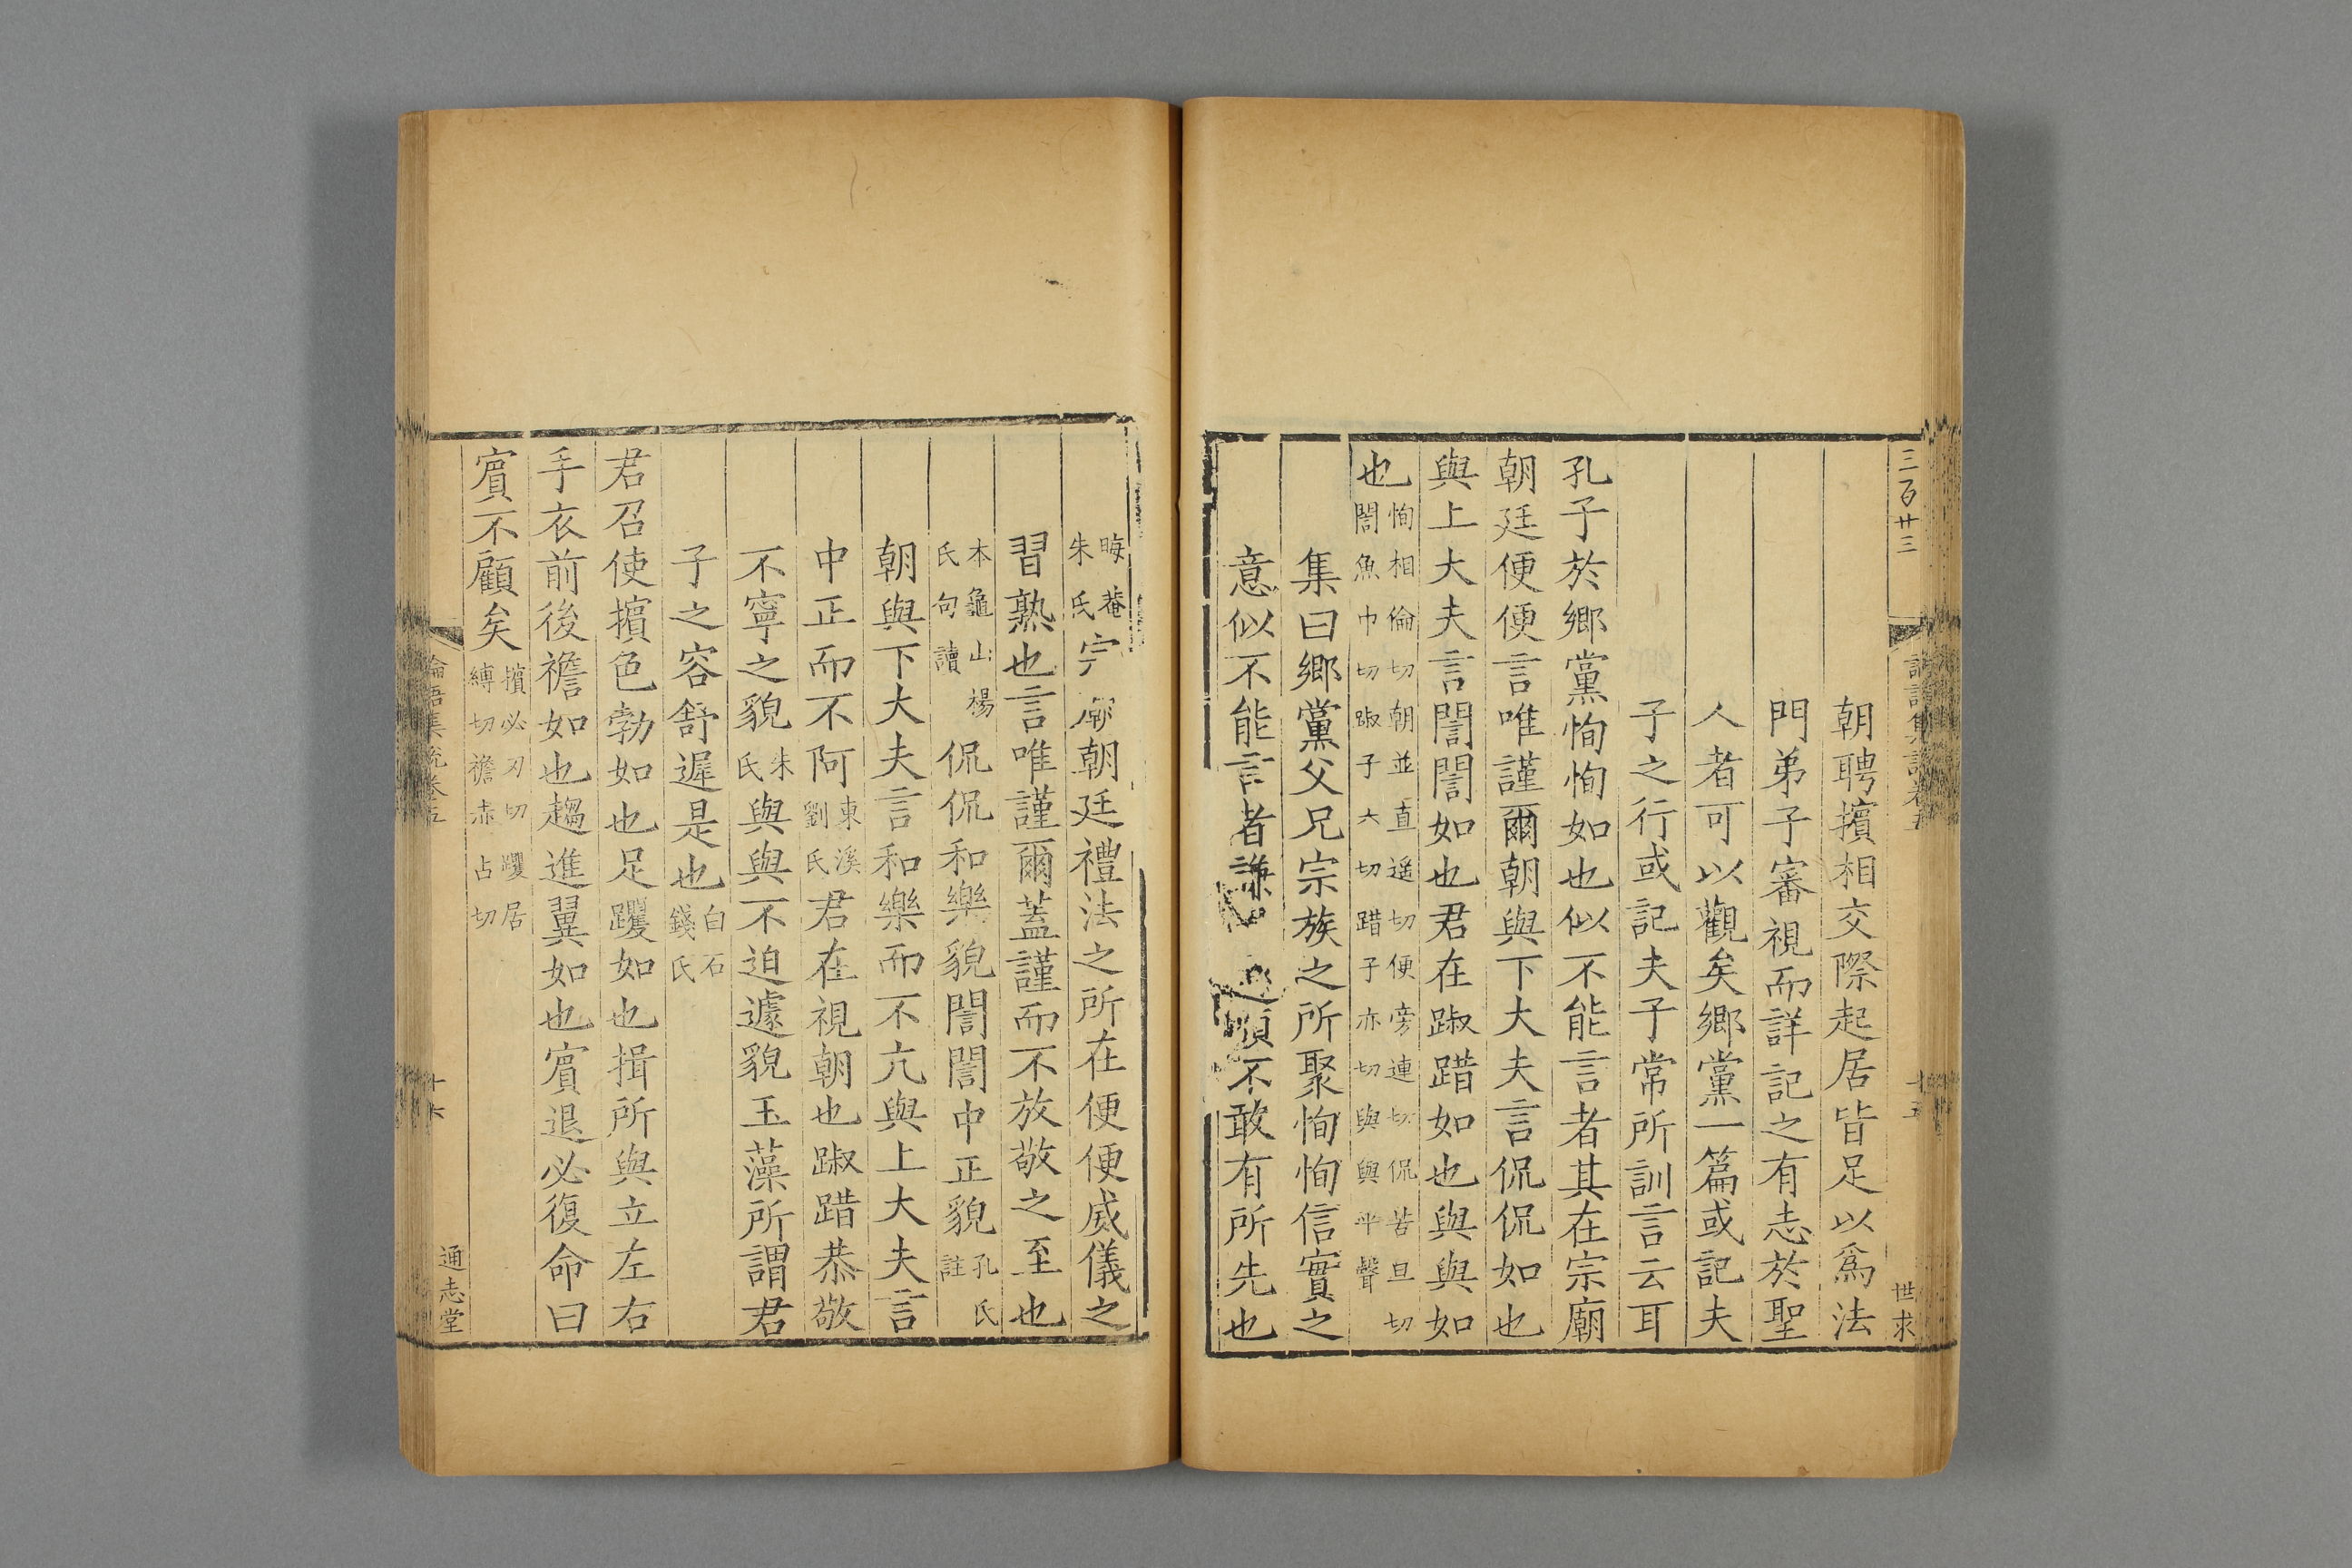 三百廿三
世求
朝聘擯相交際起居皆足以爲法
門弟子審視而詳記之有志於聖
人者可以觀矣鄉黨一篇或記夫
子之行或記夫子常所訓言云耳
孔子於鄉黨恂恂如也似不能言者其在宗廟
朝廷便便言唯謹爾朝與下大夫言侃侃如也
與上大夫言誾誾如也君在踧踖如也與與如
也
恂相倫切朝並直遥切便旁連切侃苦旦切
誾魚巾切踧子六切踖子亦切與與平聲
集曰鄉黨父兄宗族之所聚恂恂信實之
意似不能言者謙順不敢有所先也
晦菴
朱氏
宗廟朝廷禮法之所在便便威儀之
習熟也言唯謹爾蓋謹而不放敬之至也
本龜山楊
氏句讀
侃侃和樂貌誾誾中正貌
孔氏
註
朝與下大夫言和樂而不亢與上大夫言
中正而不阿
東溪
劉氏
君在視朝也踧踖恭敬
不寧之貌
朱
氏
與與不迫遽貌玉藻所謂君
子之容舒遲是也
白石
錢氏
君召使擯色勃如也足躩如也揖所與立左右
手衣前後襜如也趨進翼如也賓退必復命曰
賓不顧矣
擯必刃切躩居
縛切襜赤占切
論語集說卷五
十六
通志堂